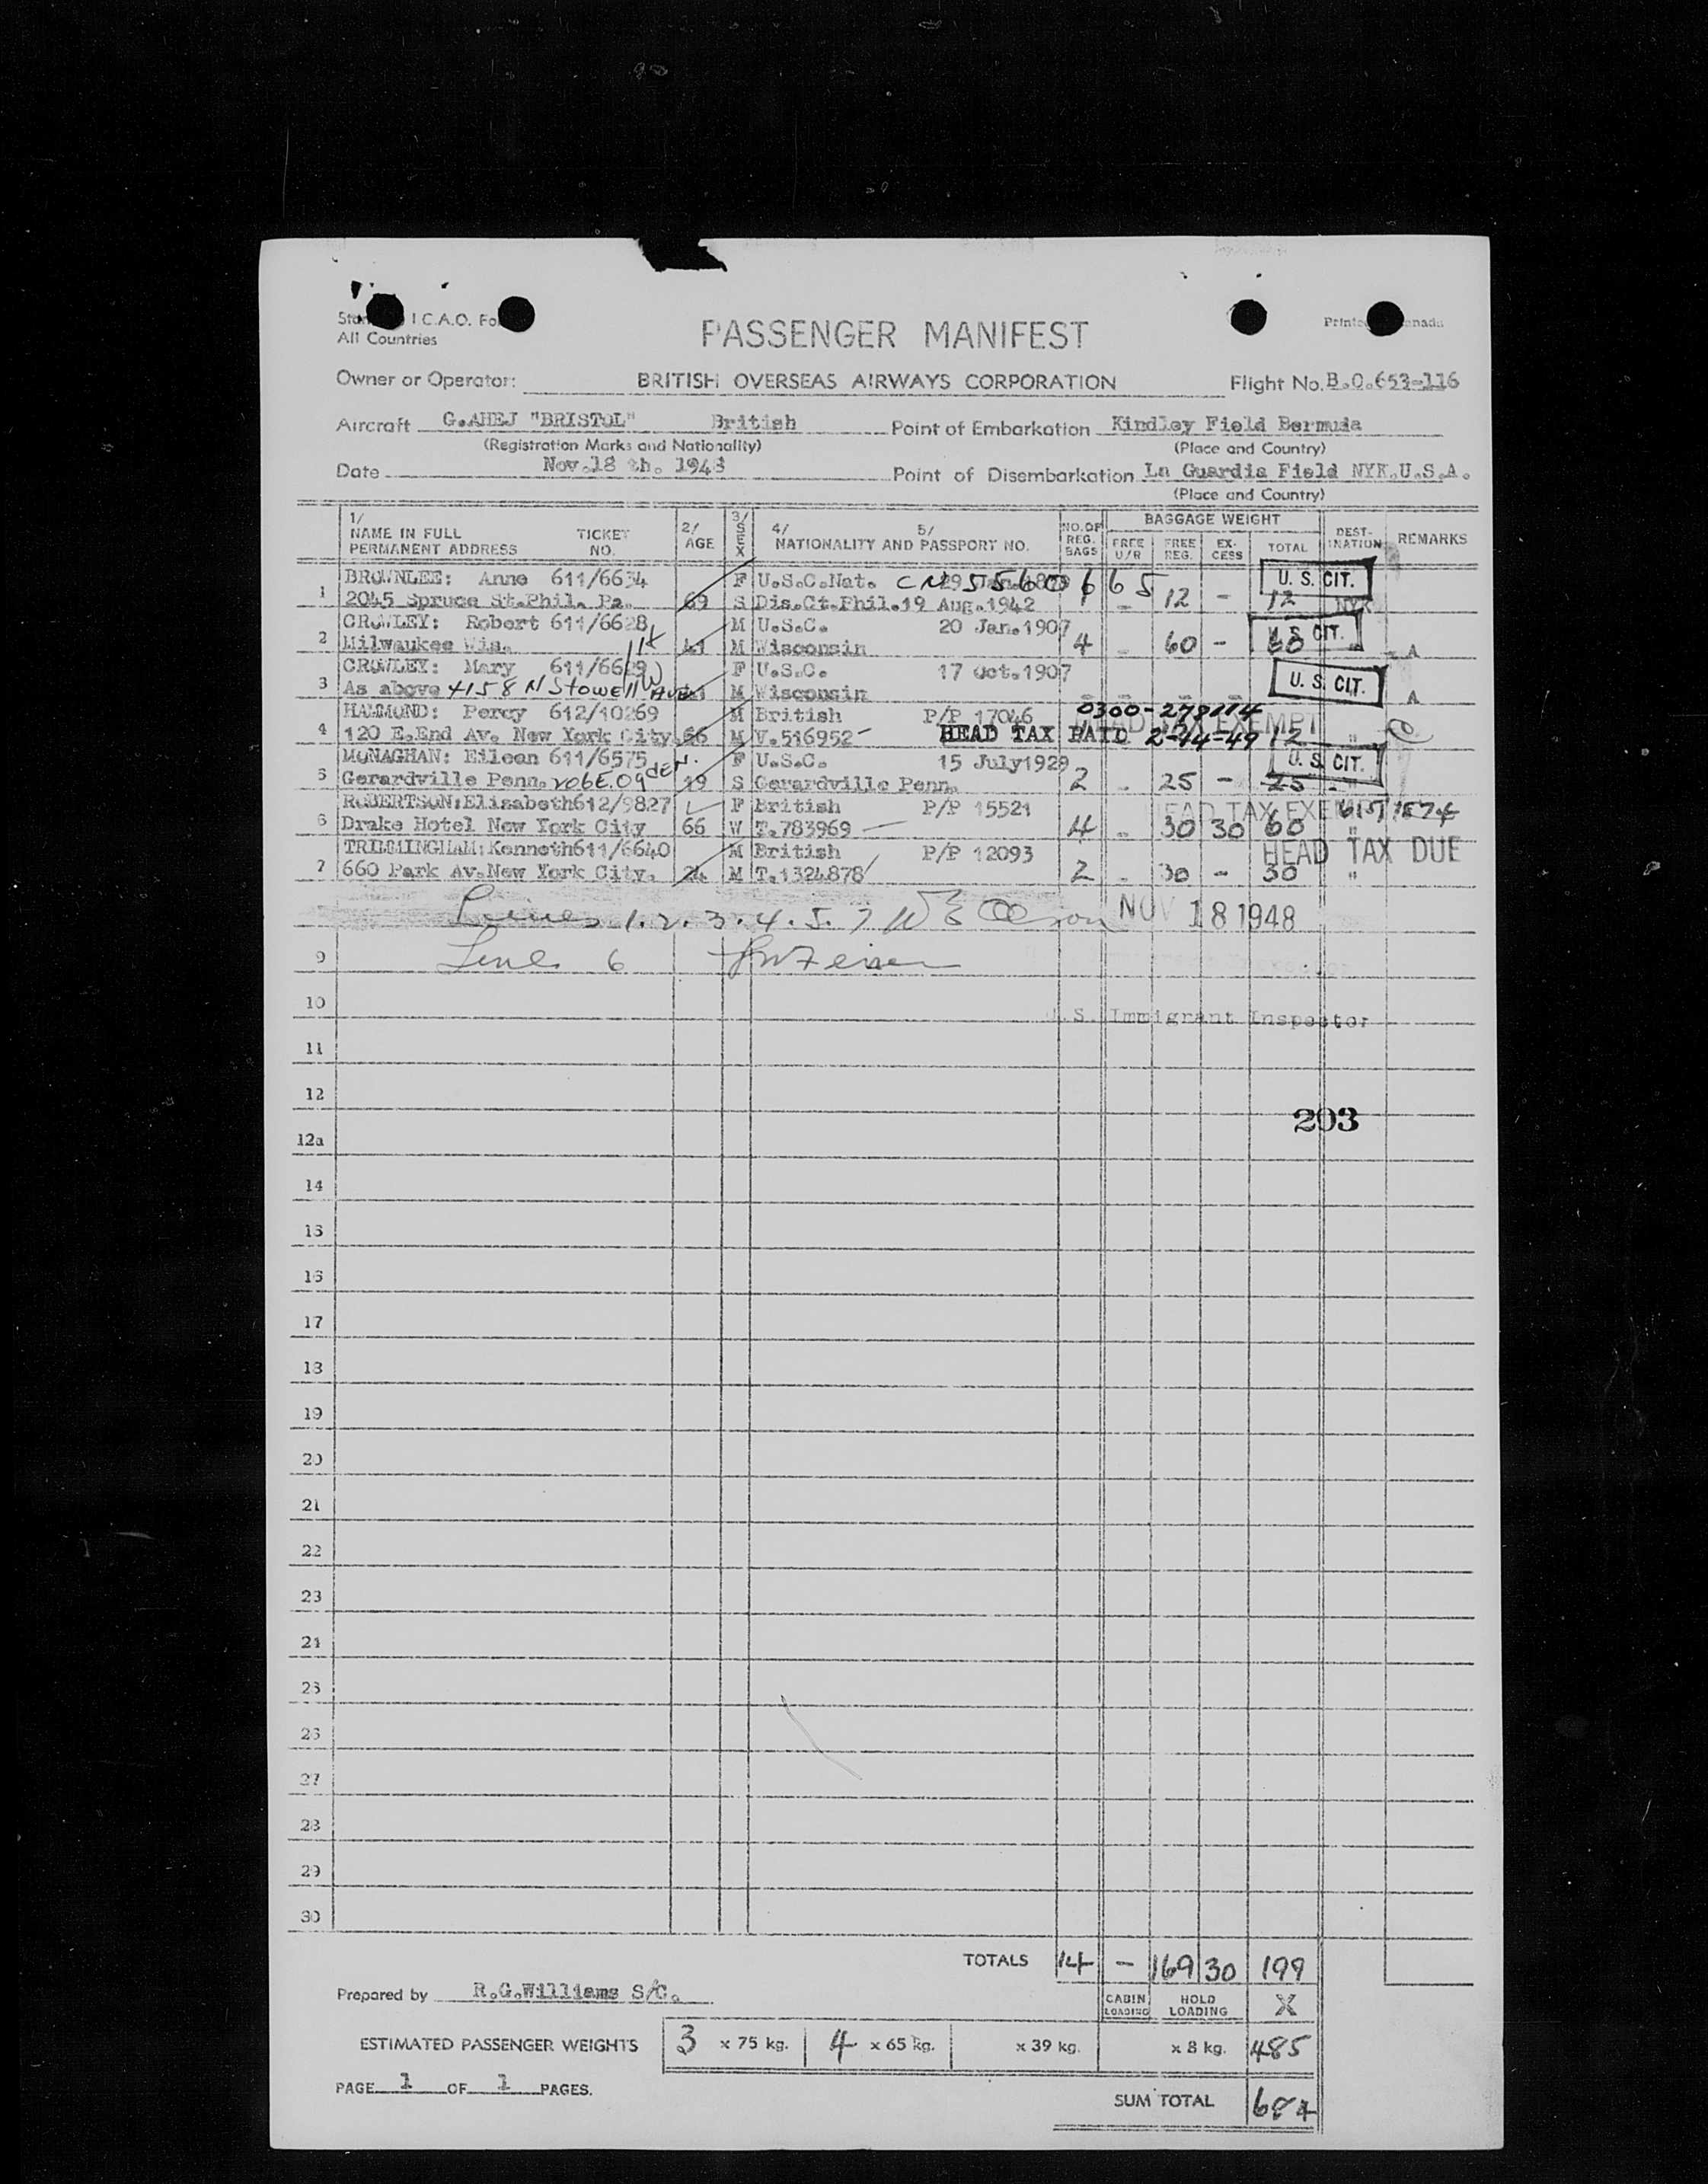 I.C.A.O.
All Countries
PASSENGER MANIFEST
Owner or Operator: BRITISH OVERSEAS AIRWAYS CORPORATION Flight No. B.O.653-116
Aircraft G.AHEJ "BRISTOL" British Point of Embarkation Kindley Field Bermuda
(Registration Marks and Nationality) (Place and Country)
Date Nov.18 th. 1948 Point of Disembarkation La Guardia Field NYK.U.S.A.
(Place and Country)
1/ NAME IN FULL PERMANENT ADDRESS TICKET NO. 2/ AGE 3/ SEX 4/ 5/ NATIONALITY AND PASSPORT NO. NO. OF REG. BAGS BAGGAGE WEIGHT FREE U/R FREE REG. EX-CESS TOTAL DEST-INATION REMARKS
BROWNLEE: Anne 611/6634 F U.S.C.Nat. U. S. CIT.
1 2045 Spruce St.Phil. Pa. 69 S Dis.Ct.Phil.19 Aug.1942 12 - 12 NYK
CROWLEY: Robert 611/6628 M U.S.C. 20 Jan.1907 U. S. CIT.
2 Milwaukee Wis. 41 M Wisconsin 4 - 60 - 60 " A
CROWLEY: Mary 611/6629 F U.S.C. 17 Oct.1907 U. S. CIT.
3 As above 4158 N Stowell Ave M Wisconsin - - - - A
HAMMOND: Percy 612/10269 M British P/P 17046 HEAD TAX EXEMPT
4 120 E.End Av. New York City 66 M V.516952 HEAD TAX PAID 2-14-49 12 "
MONAGHAN: Eileen 611/6575 F U.S.C. 15 July1929 U. S. CIT.
5 Gerardville Penn. 206 E. Ogden. 19 S Gerardville Penn. 2 - 25 - 25
ROBERTSON:Elizabeth612/9827 F British P/P 15521 HEAD TAX EXEMPT
6 Drake Hotel New York City 66 W T.783969 4 - 30 30 60 "
TRIMMINGHAM:Kenneth611/6640 M British P/P 12093 HEAD TAX DUE
7 660 Park Av.New York City. 24 M T.1324878 2 - 30 - 30 "
Lines 1.2.3.4.5.7 NOV 18 1948
9 Line 6
10 U.S. Immigrant Inspector
11
12
203
12a
14
15
16
17
18
19
20
21
22
23
24
25
26
27
28
29
30
TOTALS 14 - 169 30 199
Prepared by R.G.Williams S/C. CABIN LOADING HOLD LOADING X
ESTIMATED PASSENGER WEIGHTS 3 x 75 kg. 4 x 65 kg. x 39 kg. x 8 kg. 485
PAGE 1 OF 1 PAGES.
SUM TOTAL 684